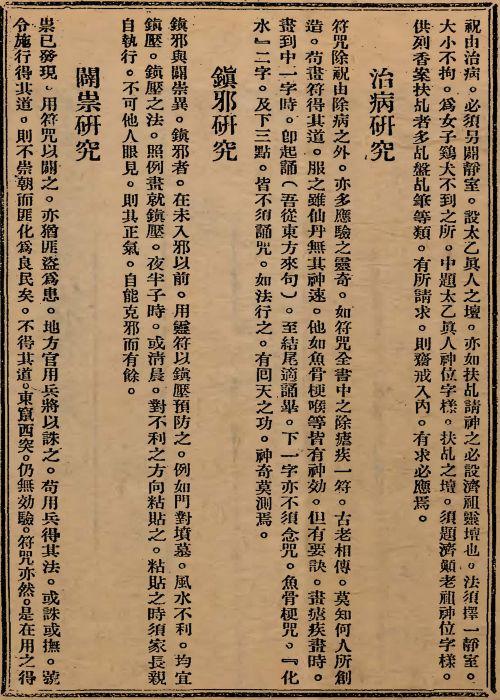 治病研究
祝由治病。必須另闢靜室。設太乙眞人之壇。亦如扶乩請神之必設濟祖靈壇也。法須擇一靜室。
大小不拘。爲女子鷄犬不到之所。中題太乙眞人神位字樣。扶乩之壇。須題濟顚老祖神位字樣。
供列香案扶乩者多乩盤乩筆等類。有所請求。則齋戒入內。有求必應焉。
符咒除祝由除病之外。亦多應驗之靈奇。如符咒全書中之除瘧疾一符。古老相傳。莫知何人所創
造。苟畫符得其道。服之雖仙丹無其神速。他如魚骨梗喉等皆有神効。但有要訣。畫瘧疾畫時。
畫到中一字時。卽起誦（吾從東方來句）。至結尾適誦畢。下一字亦不須念咒。魚骨梗咒。『化
水』二字。及下三點。皆不須誦咒。如法行之。有囘天之功。神奇莫測焉。
鎭邪研究
鎭邪與闢祟異。鎭邪者。在未入邪以前。用靈符以鎭壓預防之。例如門對墳墓。風水不利。均宜
鎭壓。鎭壓之法。照例畫就鎭壓。夜半子時。或清晨。對不利之方向粘貼之。粘貼之時須家長親
自執行。不可他人眼見。則其正氣。自能克邪而有餘。
闢祟研究
祟已發現。用符咒以闢之。亦猶匪盜爲患。地方官用兵將以誅之。苟用兵得其法。或誅或撫。號
令施行得其道。則不崇朝而匪化爲良民矣。不得其道。東竄西突。仍無効驗。符咒亦然。是在用之得